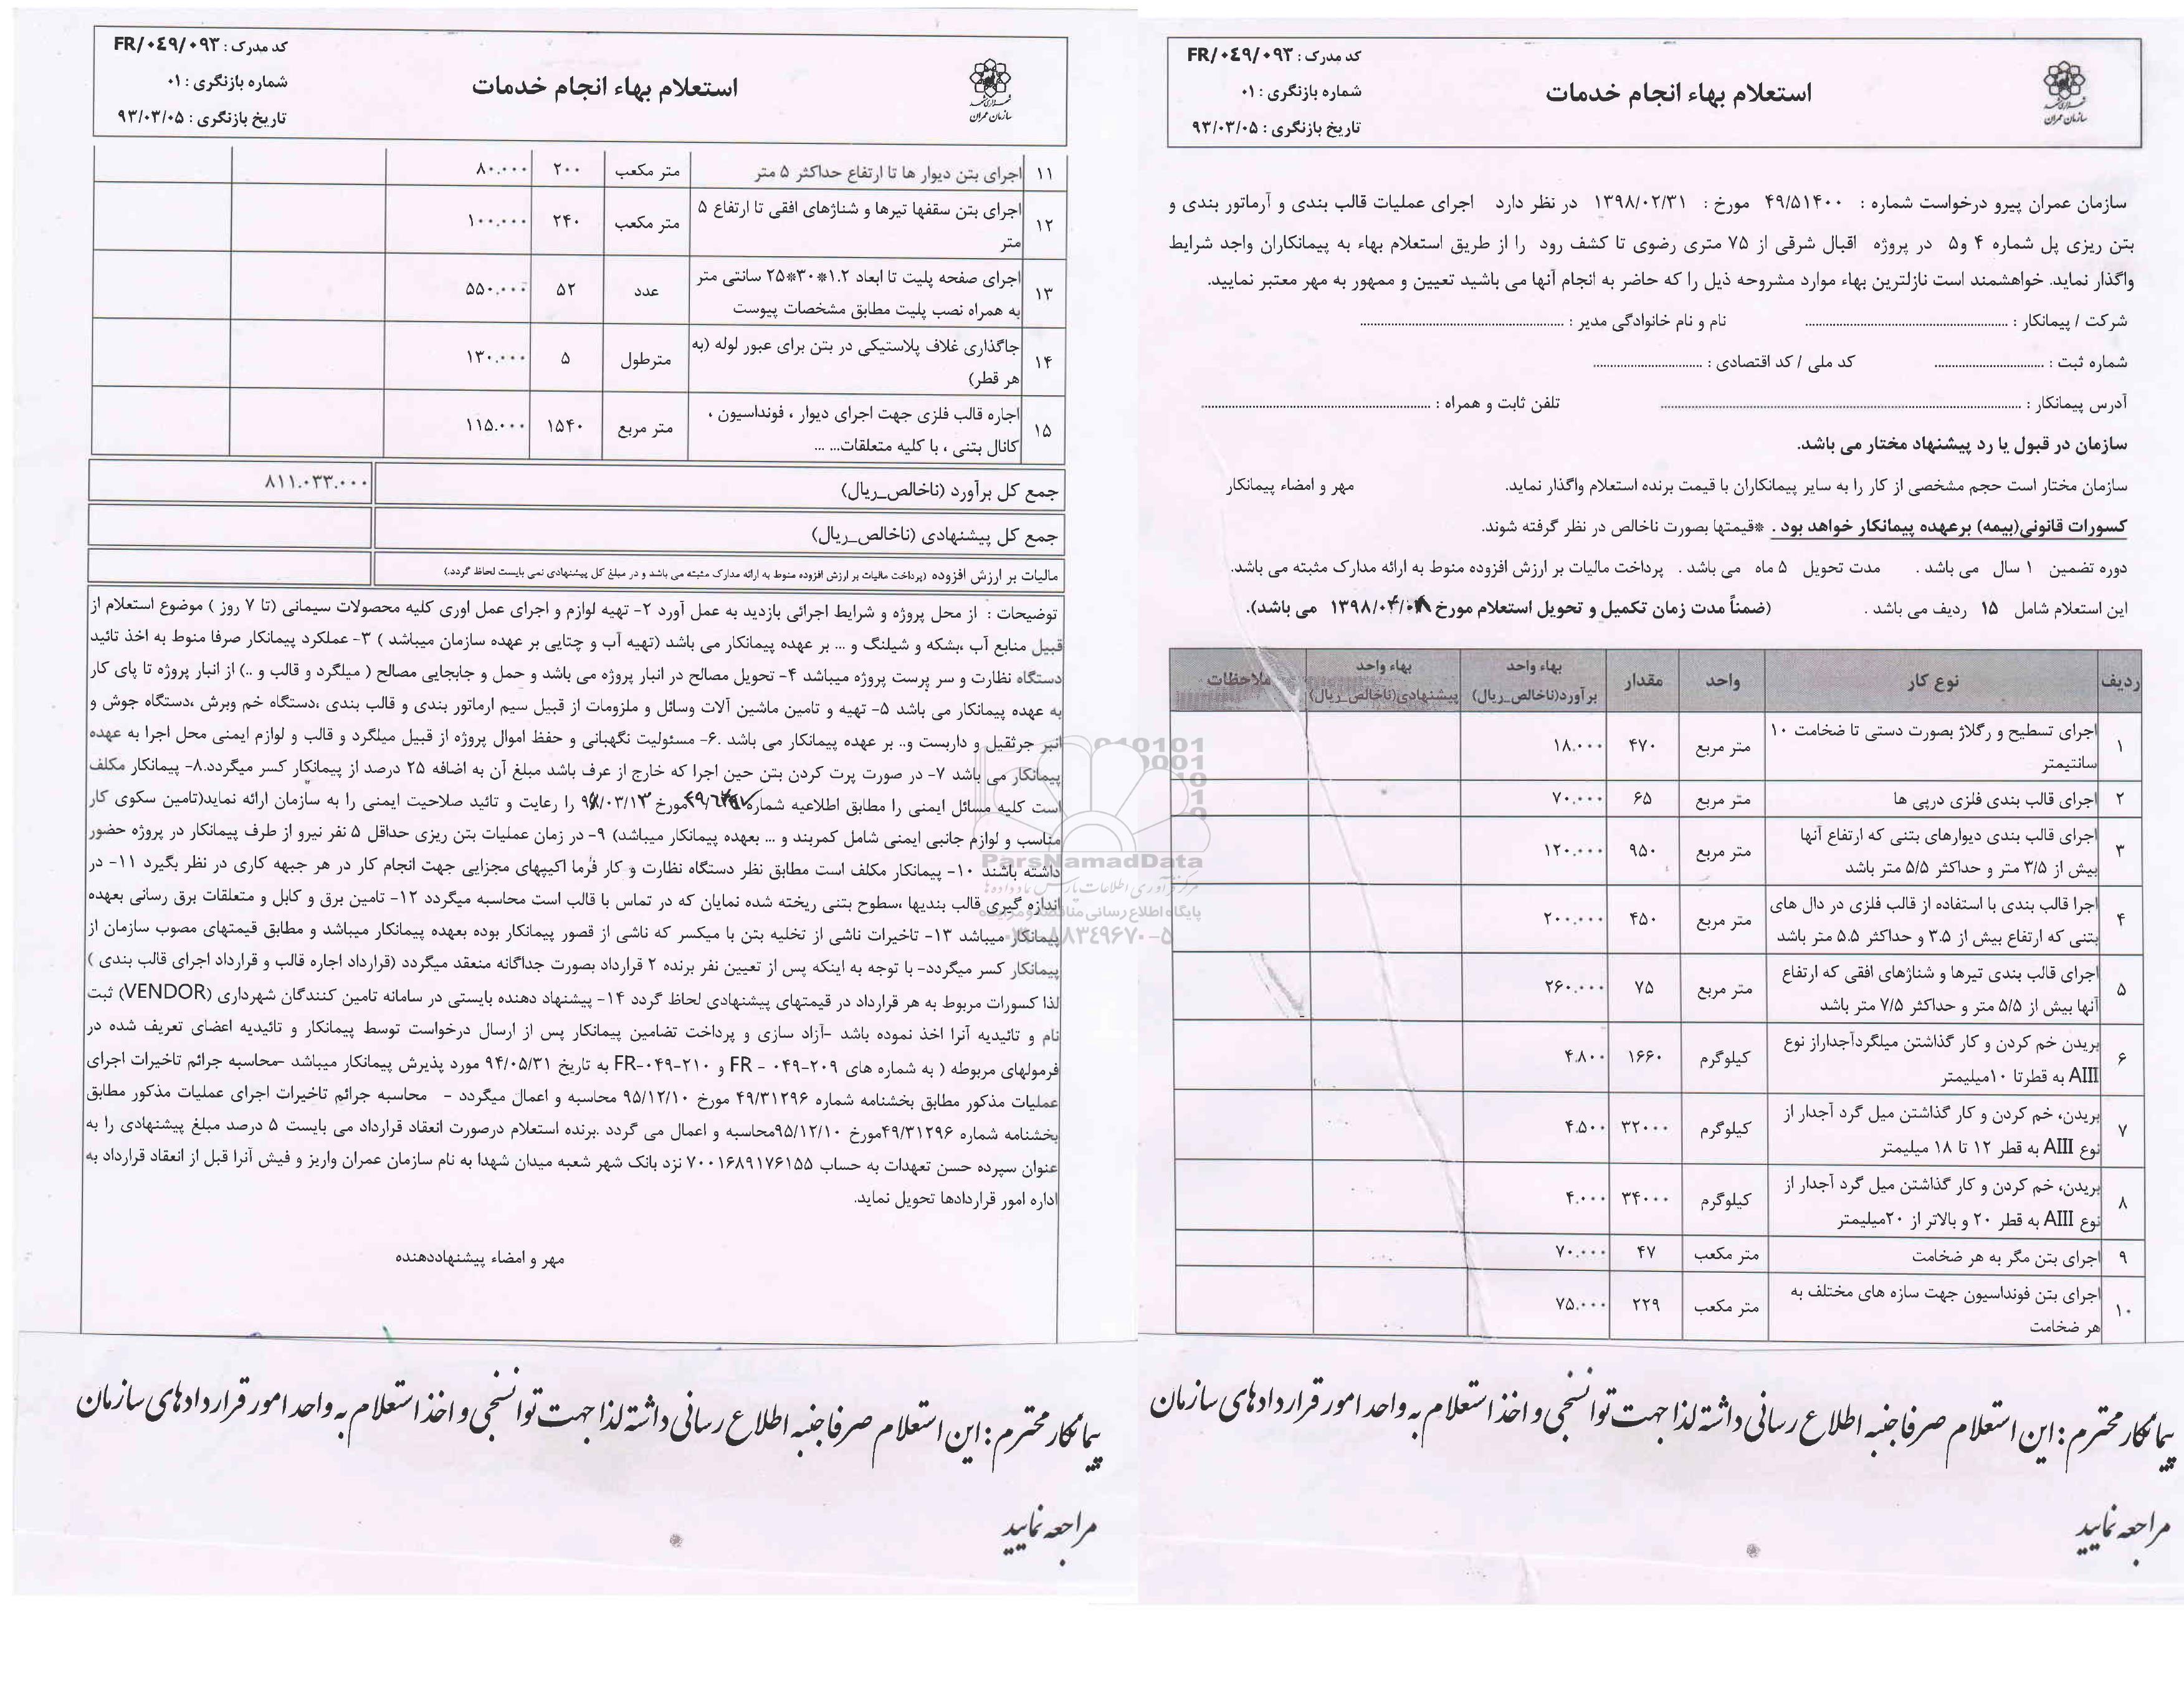 استعلام بهاء انجام خدمات
کد مدرک : FR/۰٤۹/۰۹۳
شماره بازنگری : ۰۱
تاریخ بازنگری : ۹۳/۰۳/۰۵
سازمان عمران
سازمان عمران پیرو درخواست شماره : ۴۹/۵۱۴۰۰ مورخ : ۱۳۹۸/۰۲/۳۱ در نظر دارد اجرای عملیات قالب بندی و آرماتور بندی و
بتن ریزی پل شماره ۴ و۵ در پروژه اقبال شرقی از ۷۵ متری رضوی تا کشف رود را از طریق استعلام بهاء به پیمانکاران واجد شرایط
واگذار نماید. خواهشمند است نازلترین بهاء موارد مشروحه ذیل را که حاضر به انجام آنها می باشید تعیین و ممهور به مهر معتبر نمایید.
شرکت / پیمانکار : .......... نام و نام خانوادگی مدیر : ..........
شماره ثبت : .......... کد ملی / کد اقتصادی : ..........
آدرس پیمانکار : .......... تلفن ثابت و همراه : ..........
سازمان در قبول یا رد پیشنهاد مختار می باشد.
سازمان مختار است حجم مشخصی از کار را به سایر پیمانکاران با قیمت برنده استعلام واگذار نماید. مهر و امضاء پیمانکار
کسورات قانونی(بیمه) برعهده پیمانکار خواهد بود . *قیمتها بصورت ناخالص در نظر گرفته شوند.
دوره تضمین ۱ سال می باشد . مدت تحویل ۵ ماه می باشد . پرداخت مالیات بر ارزش افزوده منوط به ارائه مدارک مثبته می باشد.
این استعلام شامل ۱۵ ردیف می باشد . (ضمناً مدت زمان تکمیل و تحویل استعلام مورخ ۱۳۹۸/ می باشد).
ردیف نوع کار واحد مقدار بهاء واحد برآورد(ناخالص_ریال) بهاء واحد پیشنهادی(ناخالص_ریال) ملاحظات
۱ اجرای تسطیح و رگلاژ بصورت دستی تا ضخامت ۱۰ سانتیمتر متر مربع ۴۷۰ ۱۸.۰۰۰
۲ اجرای قالب بندی فلزی درپی ها متر مربع ۶۵ ۷۰.۰۰۰
۳ اجرای قالب بندی دیوارهای بتنی که ارتفاع آنها بیش از ۳/۵ متر و حداکثر ۵/۵ متر باشد متر مربع ۹۵۰ ۱۲۰.۰۰۰
۴ اجرا قالب بندی با استفاده از قالب فلزی در دال های بتنی که ارتفاع بیش از ۳.۵ و حداکثر ۵.۵ متر باشد متر مربع ۴۵۰ ۲۰۰.۰۰۰
۵ اجرای قالب بندی تیرها و شناژهای افقی که ارتفاع آنها بیش از ۵/۵ متر و حداکثر ۷/۵ متر باشد متر مربع ۷۵ ۲۶۰.۰۰۰
۶ بریدن خم کردن و کار گذاشتن میلگردآجداراز نوع AIII به قطرتا ۱۰میلیمتر کیلوگرم ۱۶۶۰ ۴.۸۰۰
۷ بریدن، خم کردن و کار گذاشتن میل گرد آجدار از نوع AIII به قطر ۱۲ تا ۱۸ میلیمتر کیلوگرم ۳۲۰۰۰ ۴.۵۰۰
۸ بریدن، خم کردن و کار گذاشتن میل گرد آجدار از نوع AIII به قطر ۲۰ و بالاتر از ۲۰میلیمتر کیلوگرم ۳۴۰۰۰ ۴.۰۰۰
۹ اجرای بتن مگر به هر ضخامت متر مکعب ۴۷ ۷۰.۰۰۰
۱۰ اجرای بتن فونداسیون جهت سازه های مختلف به هر ضخامت متر مکعب ۲۲۹ ۷۵.۰۰۰
پیمانکار محترم : این استعلام صرفا جنبه اطلاع رسانی داشته لذا جهت توانسنجی و اخذ استعلام به واحد امور قراردادهای سازمان
مراجعه نمایید
استعلام بهاء انجام خدمات
کد مدرک : FR/۰٤۹/۰۹۳
شماره بازنگری : ۰۱
تاریخ بازنگری : ۹۳/۰۳/۰۵
سازمان عمران
۱۱ اجرای بتن دیوار ها تا ارتفاع حداکثر ۵ متر متر مکعب ۲۰۰ ۸۰.۰۰۰
۱۲ اجرای بتن سقفها تیرها و شناژهای افقی تا ارتفاع ۵ متر متر مکعب ۲۴۰ ۱۰۰.۰۰۰
۱۳ اجرای صفحه پلیت تا ابعاد ۱.۲*۳۰*۲۵ سانتی متر به همراه نصب پلیت مطابق مشخصات پیوست عدد ۵۲ ۵۵۰.۰۰۰
۱۴ جاگذاری غلاف پلاستیکی در بتن برای عبور لوله (به هر قطر) مترطول ۵ ۱۳۰.۰۰۰
۱۵ اجاره قالب فلزی جهت اجرای دیوار ، فونداسیون ، کانال بتنی ، با کلیه متعلقات... ... متر مربع ۱۵۴۰ ۱۱۵.۰۰۰
جمع کل برآورد (ناخالص_ریال) ۸۱۱.۰۳۳.۰۰۰
جمع کل پیشنهادی (ناخالص_ریال)
مالیات بر ارزش افزوده (پرداخت مالیات بر ارزش افزوده منوط به ارائه مدارک مثبته می باشد و در مبلغ کل پیشنهادی نمی بایست لحاظ گردد.)
توضیحات : از محل پروژه و شرایط اجرائی بازدید به عمل آورد ۲- تهیه لوازم و اجرای عمل اوری کلیه محصولات سیمانی (تا ۷ روز ) موضوع استعلام از
قبیل منابع آب ،بشکه و شیلنگ و ... بر عهده پیمانکار می باشد (تهیه آب و چتایی بر عهده سازمان میباشد ) ۳- عملکرد پیمانکار صرفا منوط به اخذ تائید
دستگاه نظارت و سر پرست پروژه میباشد ۴- تحویل مصالح در انبار پروژه می باشد و حمل و جابجایی مصالح ( میلگرد و قالب و ..) از انبار پروژه تا پای کار
به عهده پیمانکار می باشد ۵- تهیه و تامین ماشین آلات وسائل و ملزومات از قبیل سیم ارماتور بندی و قالب بندی ،دستگاه خم وبرش ،دستگاه جوش و
انبر جرثقیل و داربست و.. بر عهده پیمانکار می باشد .۶- مسئولیت نگهبانی و حفظ اموال پروژه از قبیل میلگرد و قالب و لوازم ایمنی محل اجرا به عهده
پیمانکار می باشد ۷- در صورت پرت کردن بتن حین اجرا که خارج از عرف باشد مبلغ آن به اضافه ۲۵ درصد از پیمانکار کسر میگردد.۸- پیمانکار مکلف
است کلیه مسائل ایمنی را مطابق اطلاعیه شماره مورخ را رعایت و تائید صلاحیت ایمنی را به سازمان ارائه نماید(تامین سکوی کار
مناسب و لوازم جانبی ایمنی شامل کمربند و ... بعهده پیمانکار میباشد) ۹- در زمان عملیات بتن ریزی حداقل ۵ نفر نیرو از طرف پیمانکار در پروژه حضور
داشته باشند ۱۰- پیمانکار مکلف است مطابق نظر دستگاه نظارت و کار فرما اکیپهای مجزایی جهت انجام کار در هر جبهه کاری در نظر بگیرد ۱۱- در
اندازه گیری قالب بندیها ،سطوح بتنی ریخته شده نمایان که در تماس با قالب است محاسبه میگردد ۱۲- تامین برق و کابل و متعلقات برق رسانی بعهده
پیمانکار میباشد ۱۳- تاخیرات ناشی از تخلیه بتن با میکسر که ناشی از قصور پیمانکار بوده بعهده پیمانکار میباشد و مطابق قیمتهای مصوب سازمان از
پیمانکار کسر میگردد- با توجه به اینکه پس از تعیین نفر برنده ۲ قرارداد بصورت جداگانه منعقد میگردد (قرارداد اجاره قالب و قرارداد اجرای قالب بندی )
لذا کسورات مربوط به هر قرارداد در قیمتهای پیشنهادی لحاظ گردد ۱۴- پیشنهاد دهنده بایستی در سامانه تامین کنندگان شهرداری (VENDOR) ثبت
نام و تائیدیه آنرا اخذ نموده باشد -آزاد سازی و پرداخت تضامین پیمانکار پس از ارسال درخواست توسط پیمانکار و تائیدیه اعضای تعریف شده در
فرمولهای مربوطه ( به شماره های ۲۰۹-۰۴۹ - FR و ۲۱۰-۰۴۹-FR به تاریخ ۹۴/۰۵/۳۱ مورد پذیرش پیمانکار میباشد -محاسبه جرائم تاخیرات اجرای
عملیات مذکور مطابق بخشنامه شماره ۴۹/۳۱۲۹۶ مورخ ۹۵/۱۲/۱۰ محاسبه و اعمال میگردد - محاسبه جرائم تاخیرات اجرای عملیات مذکور مطابق
بخشنامه شماره ۴۹/۳۱۲۹۶مورخ ۹۵/۱۲/۱۰محاسبه و اعمال می گردد .برنده استعلام درصورت انعقاد قرارداد می بایست ۵ درصد مبلغ پیشنهادی را به
عنوان سپرده حسن تعهدات به حساب ۷۰۰۱۶۸۹۱۷۶۱۵۵ نزد بانک شهر شعبه میدان شهدا به نام سازمان عمران واریز و فیش آنرا قبل از انعقاد قرارداد به
اداره امور قراردادها تحویل نماید.
مهر و امضاء پیشنهاددهنده
پیمانکار محترم : این استعلام صرفا جنبه اطلاع رسانی داشته لذا جهت توانسنجی و اخذ استعلام به واحد امور قراردادهای سازمان
مراجعه نمایید
ParsNamadData
۸۸۳٤۹۶۷۰-۵